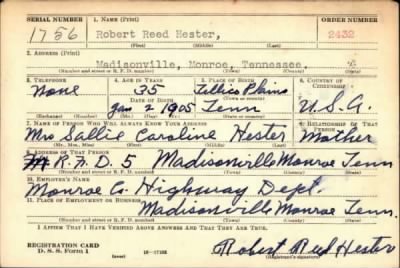 SERIAL NUMBER 1. NAME (Print) ORDER NUMBER
1756 Robert Reed Hester, 2432
(First) (Middle) (Last)
2. ADDRESS (Print)
Madisonville, Monroe, Tennessee.
(Number and street or R. F. D. number) (Town) (County) (State)
3. TELEPHONE 4. AGE IN YEARS 5. PLACE OF BIRTH 6. COUNTRY OF CITIZENSHIP
None 35 Tellico Plains
DATE OF BIRTH (Town or county)
Jan 2 1905 Tenn U.S.A.
(Mo.) (Day) (Yr.) (State or country)
7. NAME OF PERSON WHO WILL ALWAYS KNOW YOUR ADDRESS 8. RELATIONSHIP OF THAT PERSON
Mrs Sallie Caroline Hester Mother
(Mr., Mrs., Miss) (First) (Middle) (Last)
9. ADDRESS OF THAT PERSON
R.F.D. 5 Madisonville Monroe Tenn
(Number and street or R. F. D. number) (Town) (County) (State)
10. EMPLOYER'S NAME
Monroe Co. Highway Dept.
11. PLACE OF EMPLOYMENT OR BUSINESS
Madisonville Monroe Tenn.
(Number and street or R. F. D. number) (Town) (County) (State)
I AFFIRM THAT I HAVE VERIFIED ABOVE ANSWERS AND THAT THEY ARE TRUE.
REGISTRATION CARD
D. S. S. Form 1 (over) Robert Reed Hester
(Registrant's signature)